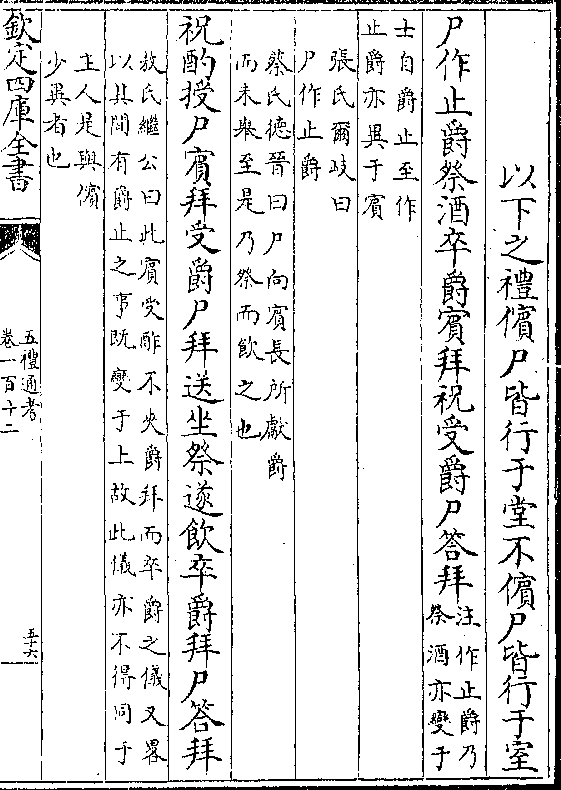 以下之禮儐尸皆行于堂不儐尸皆行于室
尸作止爵祭酒卒爵賓拜祝受爵尸答拜
注作止爵乃
祭酒亦變于
士自爵止至作
止爵亦異于賓
張氏爾岐曰
尸作止爵
蔡氏德晉曰尸向賓長所獻爵
而未舉至是乃祭而飲之也
祝酌授尸賓拜受爵尸拜送坐祭遂飲卒爵拜尸答拜
敖氏繼公曰此賓受酢不夾爵拜而卒爵之儀又畧
以其間有爵止之事既變于上故此儀亦不得同于
主人是與儐
少異者也
欽定四庫全書
五禮通考
卷一百十二
五十六